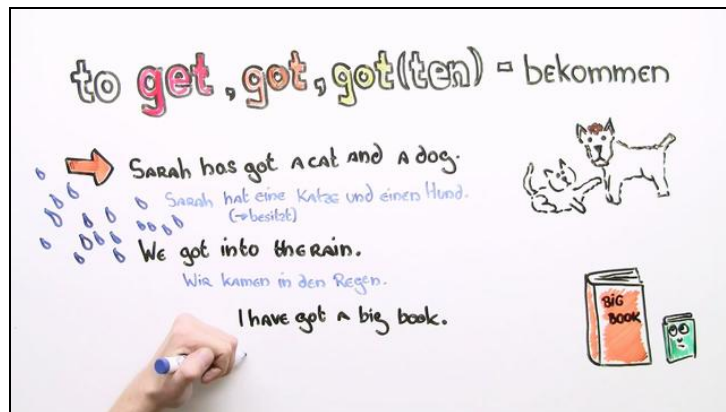 to get, got, got(ten) = bekommen
Sarah has got a cat and a dog.
Sarah hat eine Katze und einen Hund.
(→ besitzt)
We got into the rain.
Wir kamen in den Regen.
I have got a big book.
BIG
BOOK